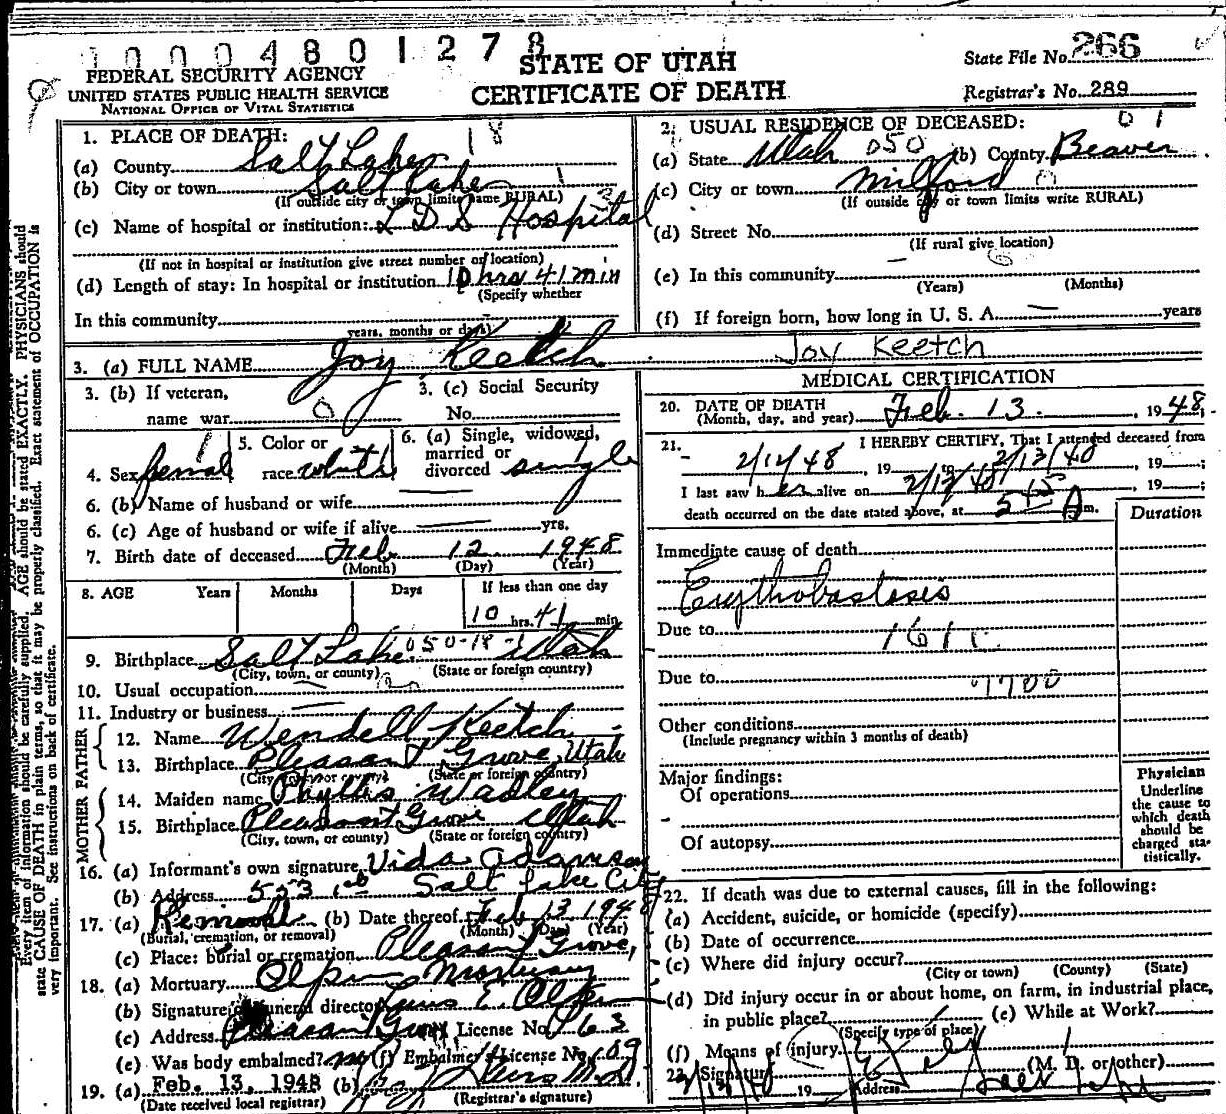 1000480 1278
STATE OF UTAH
CERTIFICATE OF DEATH
FEDERAL SECURITY AGENCY
UNITED STATES PUBLIC HEALTH SERVICE
NATIONAL OFFICE OF VITAL STATISTICS
State File No. 266
Registrar's No. 289
1. PLACE OF DEATH: 18
(a) County Salt Lake
(b) City or town Salt Lake
(If outside city or town limits name RURAL)
(c) Name of hospital or institution: L D S Hospital
(If not in hospital or institution give street number or location)
(d) Length of stay: In hospital or institution 10 hrs 41 min
(Specify whether
In this community
years, months or days)
2. USUAL RESIDENCE OF DECEASED: 01
(a) State Utah 050 (b) County Beaver
(c) City or town Milford 0
(If outside city or town limits write RURAL)
(d) Street No.
(If rural give location)
(e) In this community
(Years) (Months)
(f) If foreign born, how long in U. S. A. — years
3. (a) FULL NAME Joy Keetch Joy Keetch
3. (b) If veteran,
name war 0
3. (c) Social Security
No.
4. Sex femal
5. Color or
race white
6. (a) Single, widowed,
married or
divorced single
6. (b) Name of husband or wife
6. (c) Age of husband or wife if alive yrs.
7. Birth date of deceased Feb 12 1948
(Month) (Day) (Year)
8. AGE Years Months Days If less than one day
10 hrs. 41 min
9. Birthplace Salt Lake 050-18-1 Utah
(City, town, or county) (State or foreign country)
10. Usual occupation
11. Industry or business
FATHER
12. Name Wendell Keetch
13. Birthplace Pleasant Grove, Utah
(City, town or county) (State or foreign country)
MOTHER
14. Maiden name Phyllis Wadley
15. Birthplace Pleasant Grove Utah
(City, town, or county) (State or foreign country)
16. (a) Informant's own signature Vida Adamson
(b) Address 553 Salt Lake City
17. (a) Removal (b) Date thereof Feb 13 1948
(Burial, cremation, or removal) (Month) (Day) (Year)
(c) Place: burial or cremation Pleasant Grove,
18. (a) Mortuary Olpin Mortuary
(b) Signature of funeral director E. Olpin
(c) Address Pleasant Grove License No. 763
(e) Was body embalmed? no (f) Embalmer's License No. 109
19. (a) Feb. 13, 1948 (b) M.D.
(Date received local registrar) (Registrar's signature)
MEDICAL CERTIFICATION
20. DATE OF DEATH
(Month, day, and year) Feb. 13. , 1948.
21. I HEREBY CERTIFY, That I attended deceased from
2/12/48 , 19 to 2/13/48 , 19 ;
I last saw her alive on 2/13/48 , 19 ;
death occurred on the date stated above, at 5 15 A m.
Duration
Immediate cause of death
Erythobastosis
Due to 161
Due to 7700
Other conditions
(Include pregnancy within 3 months of death)
Major findings:
Of operations
Of autopsy
Physician
Underline
the cause to
which death
should be
charged sta-
tistically.
22. If death was due to external causes, fill in the following:
(a) Accident, suicide, or homicide (specify)
(b) Date of occurrence
(c) Where did injury occur?
(City or town) (County) (State)
(d) Did injury occur in or about home, on farm, in industrial place,
in public place? (e) While at Work?
(Specify type of place)
(f) Means of injury
23. Signature (M. D. or other)
2/13/48 19 Address
Every item of information should be carefully supplied. AGE should be stated EXACTLY. PHYSICIANS should
state CAUSE OF DEATH in plain terms, so that it may be properly classified. Exact statement of OCCUPATION is
very important. See instructions on back of certificate.